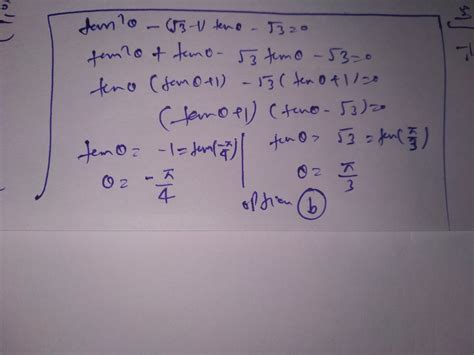 tan²θ - (√3-1) tanθ - √3=0
tan²θ + tanθ - √3 tanθ - √3=0
tanθ (tanθ+1) - √3(tanθ+1)=0
(tanθ+1) (tanθ-√3)=0
tanθ = -1=tan(-π/4) tanθ = √3=tan(π/3)
θ= -π/4 θ= π/3
option (b)